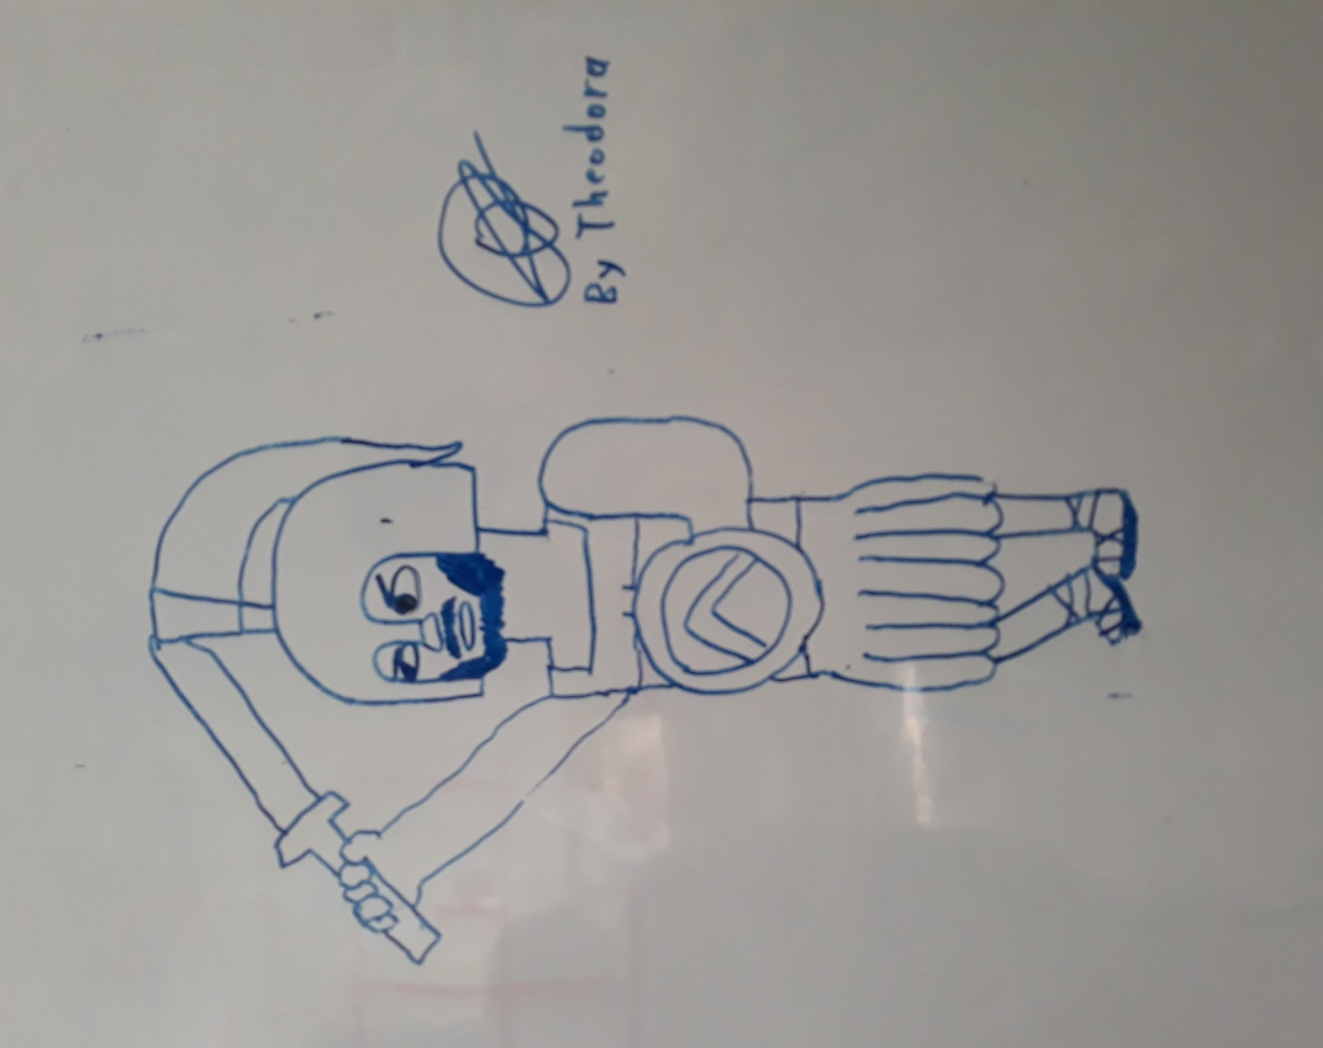 By Theodora